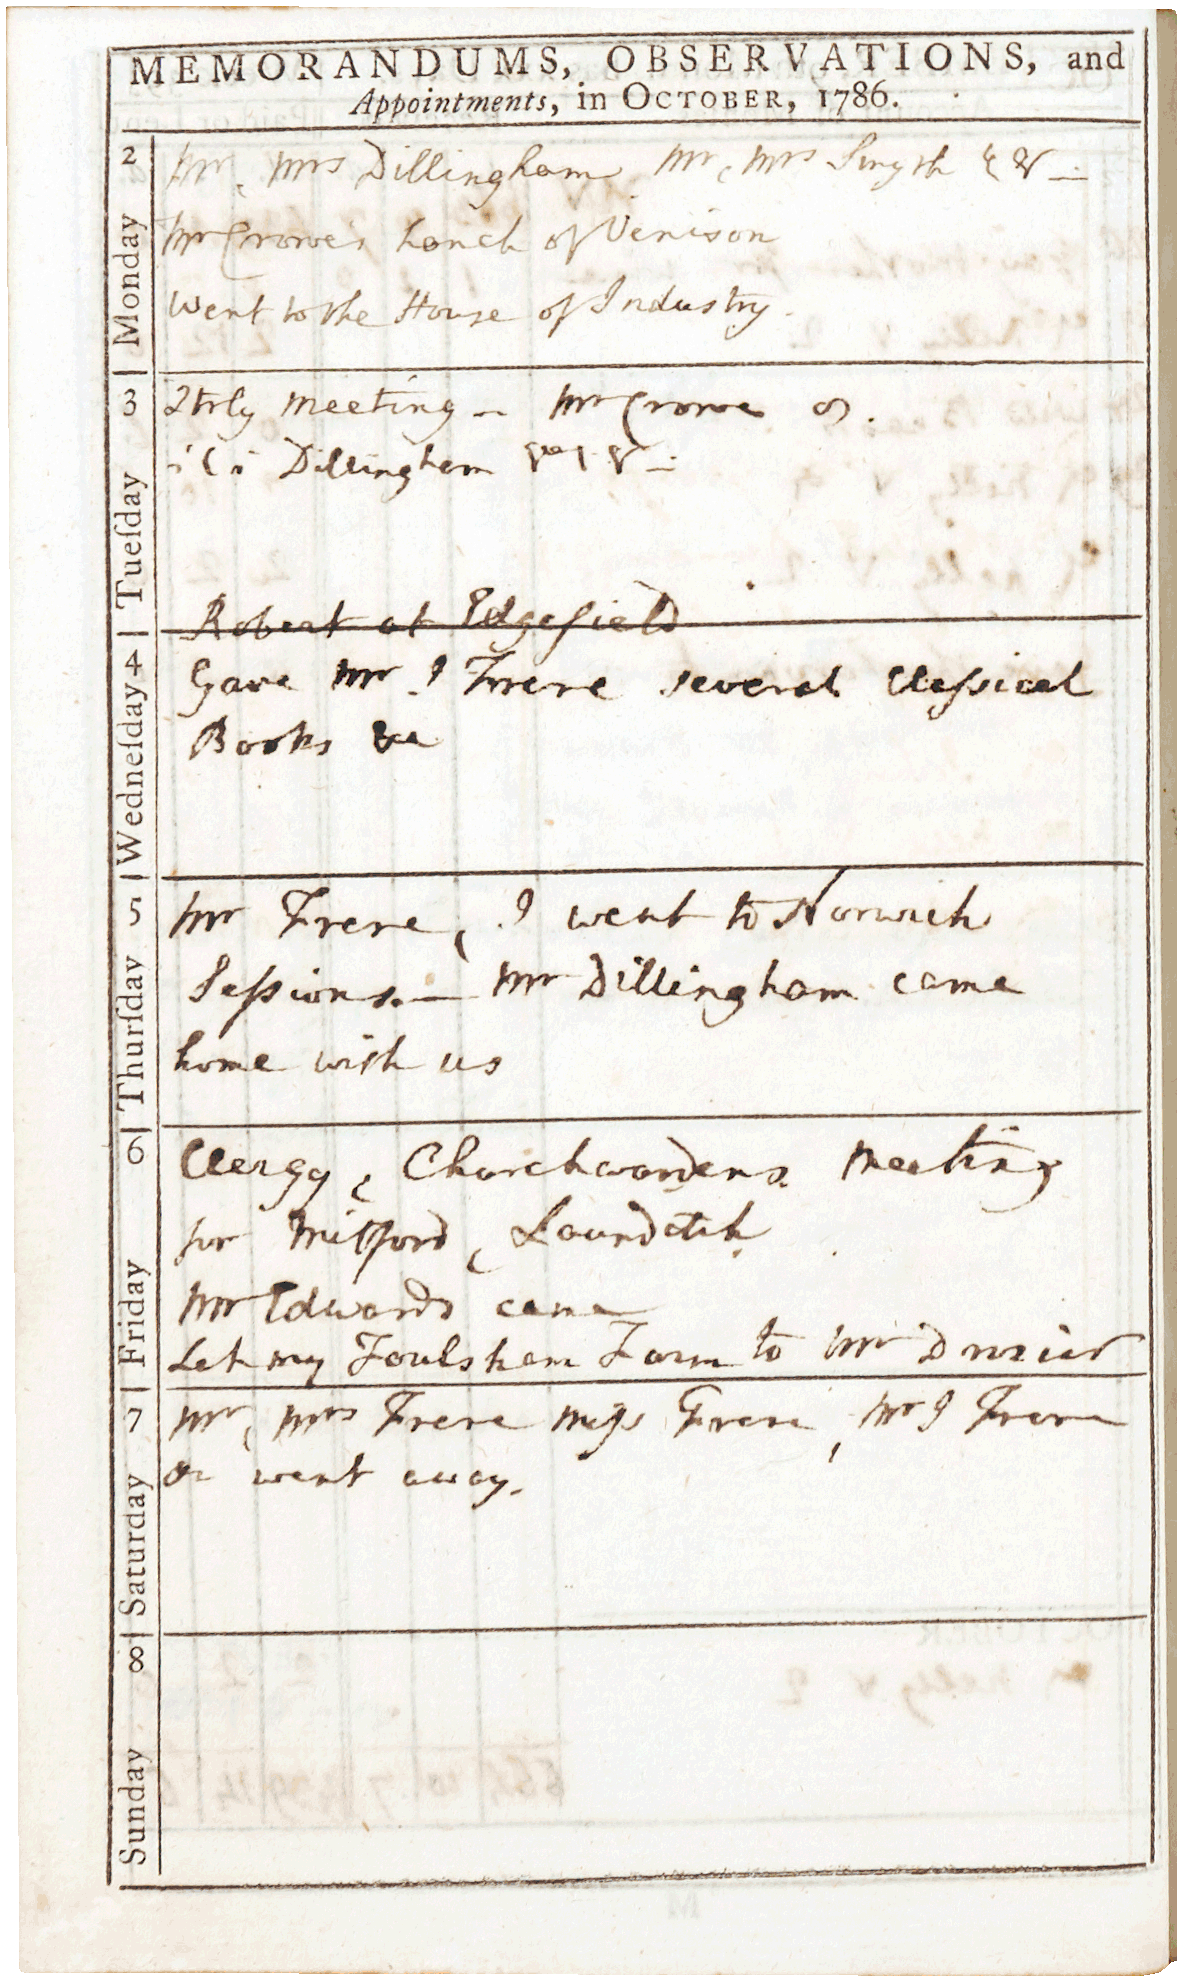 MEMORANDUMS, OBSERVATIONS, and
Appointments, in OCTOBER, 1786.
2 Monday
Mr & Mrs Dillingham Mr & Mrs Smyth & &c —
Mr Crowe's hanch of Venison
Went to the House of Industry.
3 Tueſday
Qtrly Meeting — Mr Crowe
Dillingham
Robert at Edgefield
4 Wedneſday
Gave Mr J Frere several Claſsical
Books &c
5 Thurſday
Mr Frere & I went to Norwich
Seſsions. — Mr Dillingham came
home with us
6 Friday
Clergy & Churchwardens Meeting
for Mitford & Launditch
Mr Edwards came
Let my Foulsham Farm to Mr Drozier
7 Saturday
Mr & Mrs Frere Miſs Frere, Mr J Frere
&c went away.
8 Sunday